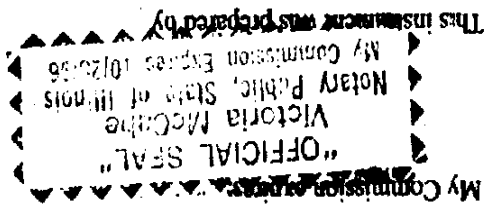 My Commission expires:
"OFFICIAL SEAL"
Victoria McCabe
Notary Public, State of Illinois
My Commission Expires 10/26/96
This instrument was prepared by